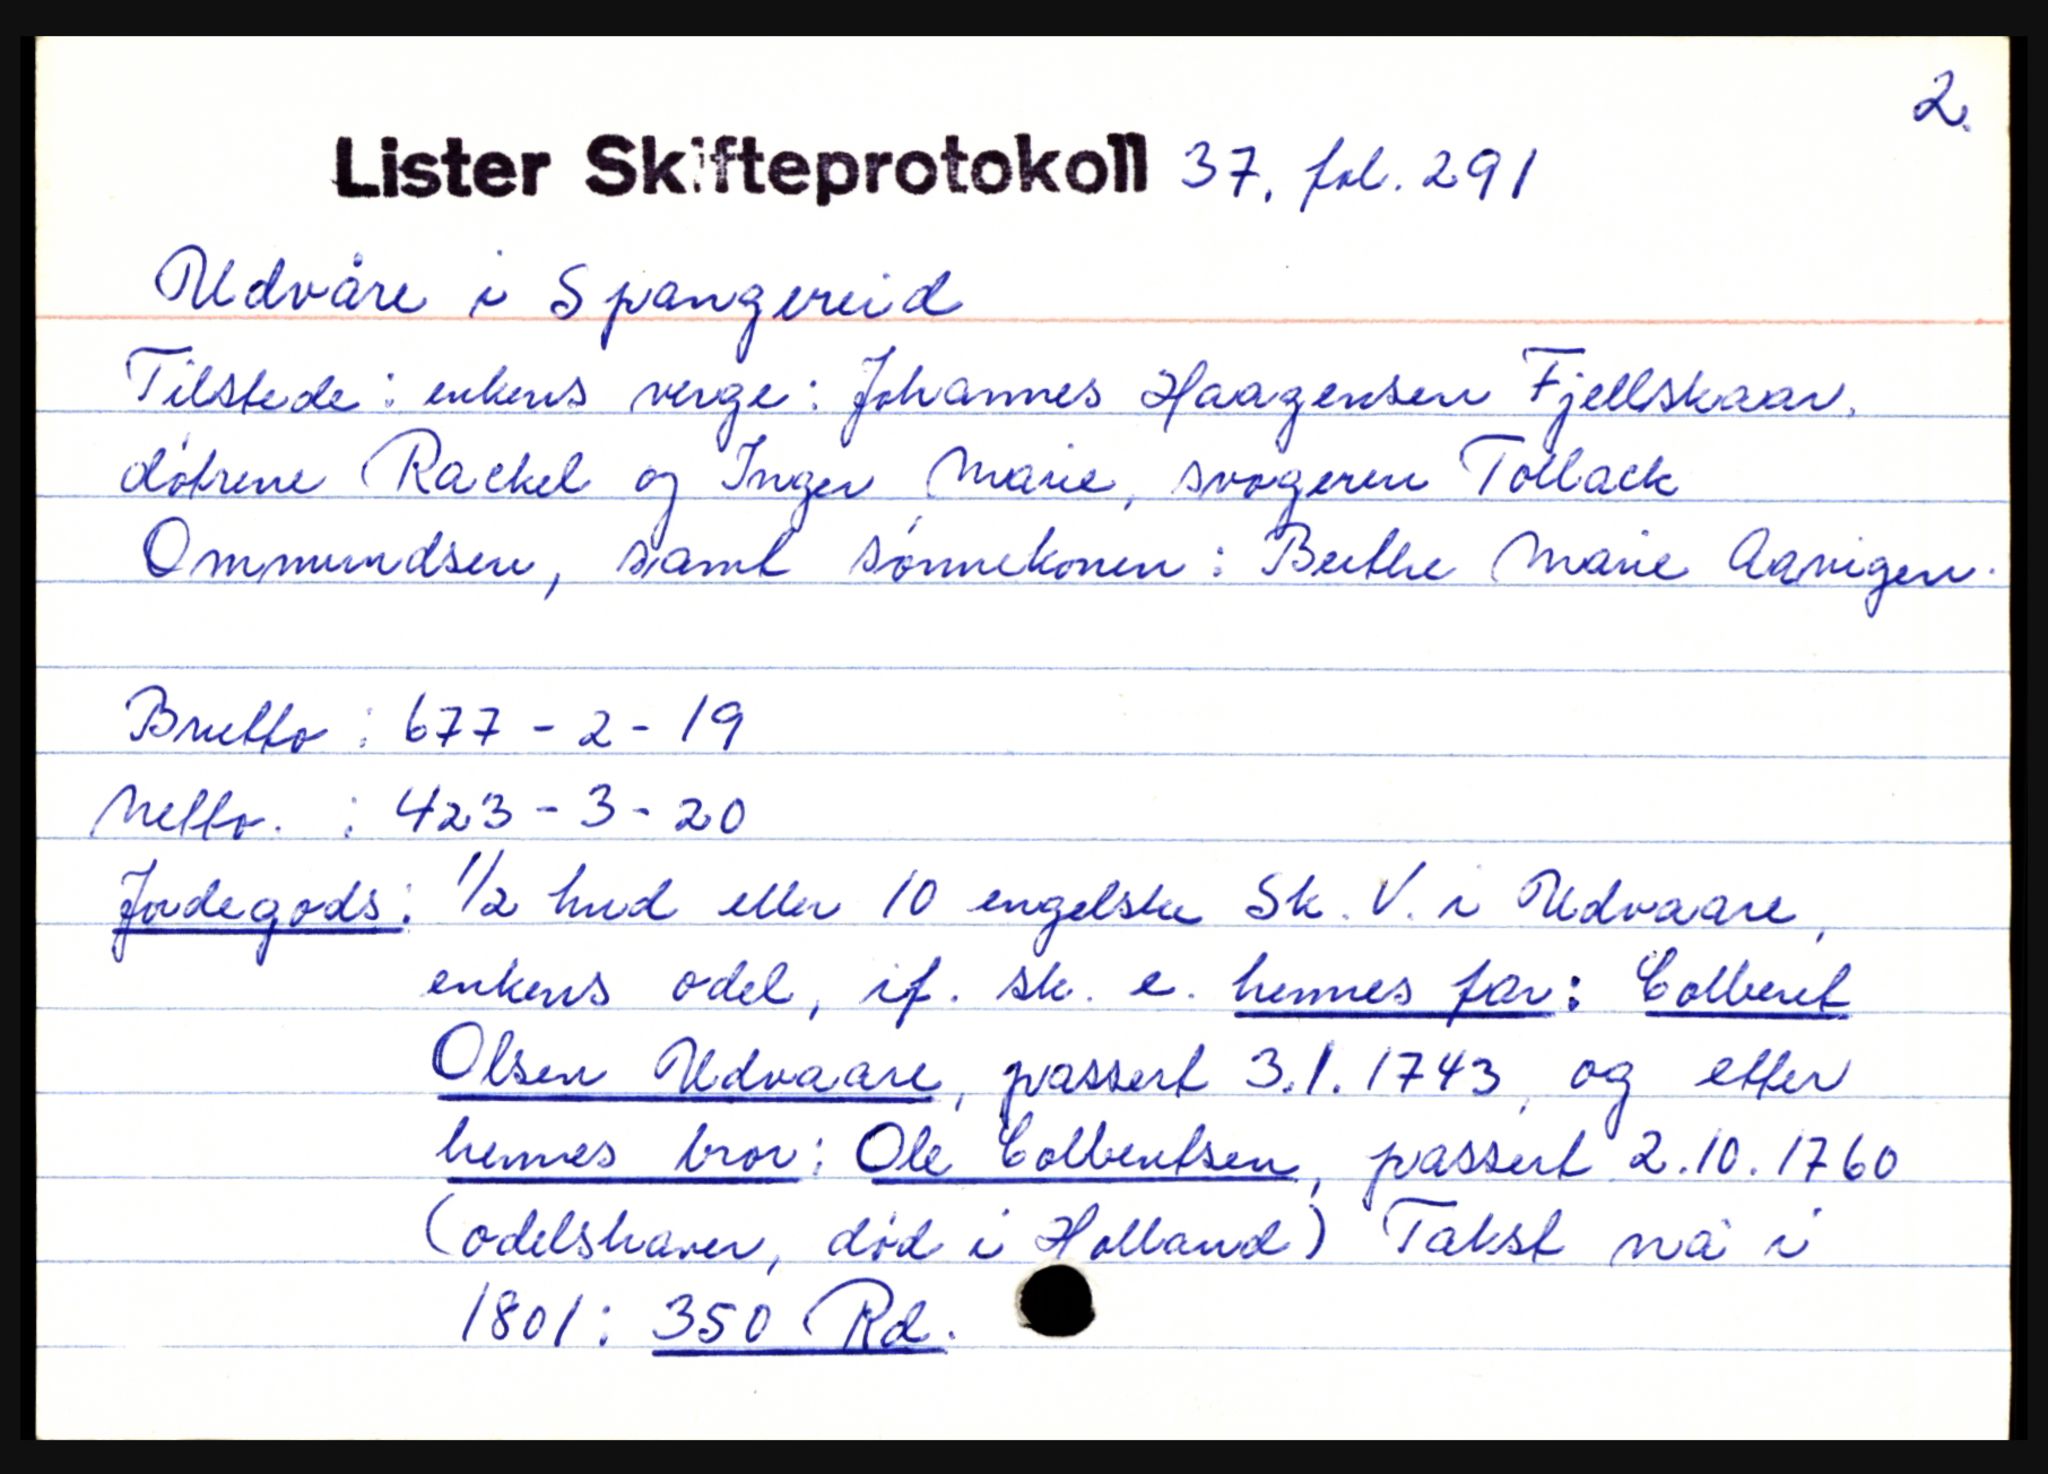 2.
Lister Skifteprotokoll 37. fol. 291
Udvåre i Spangereid
Tilstede: enkens verge: Johannes Haagensen Fjellskaar,
døtrene Rackel og Inger Marie, svogeren Tollack
Ommundsen, samt sønnekonen: Berthe Marie Aavigen.
Brutto: 677 - 2 - 19
Netto. : 423 - 3 - 20
Jordegods: 1/2 hud eller 10 engelske Sk. V. i Udvaare,
enkens odel, if. sk. e. hennes far: Colbent
Olsen Udvaare, passert 3.1.1743, og etter
hennes bror: Ole Colbentsen, passert 2.10.1760
(odelshaver, død i Holland) Takst nå i
1801: 350 Rd.